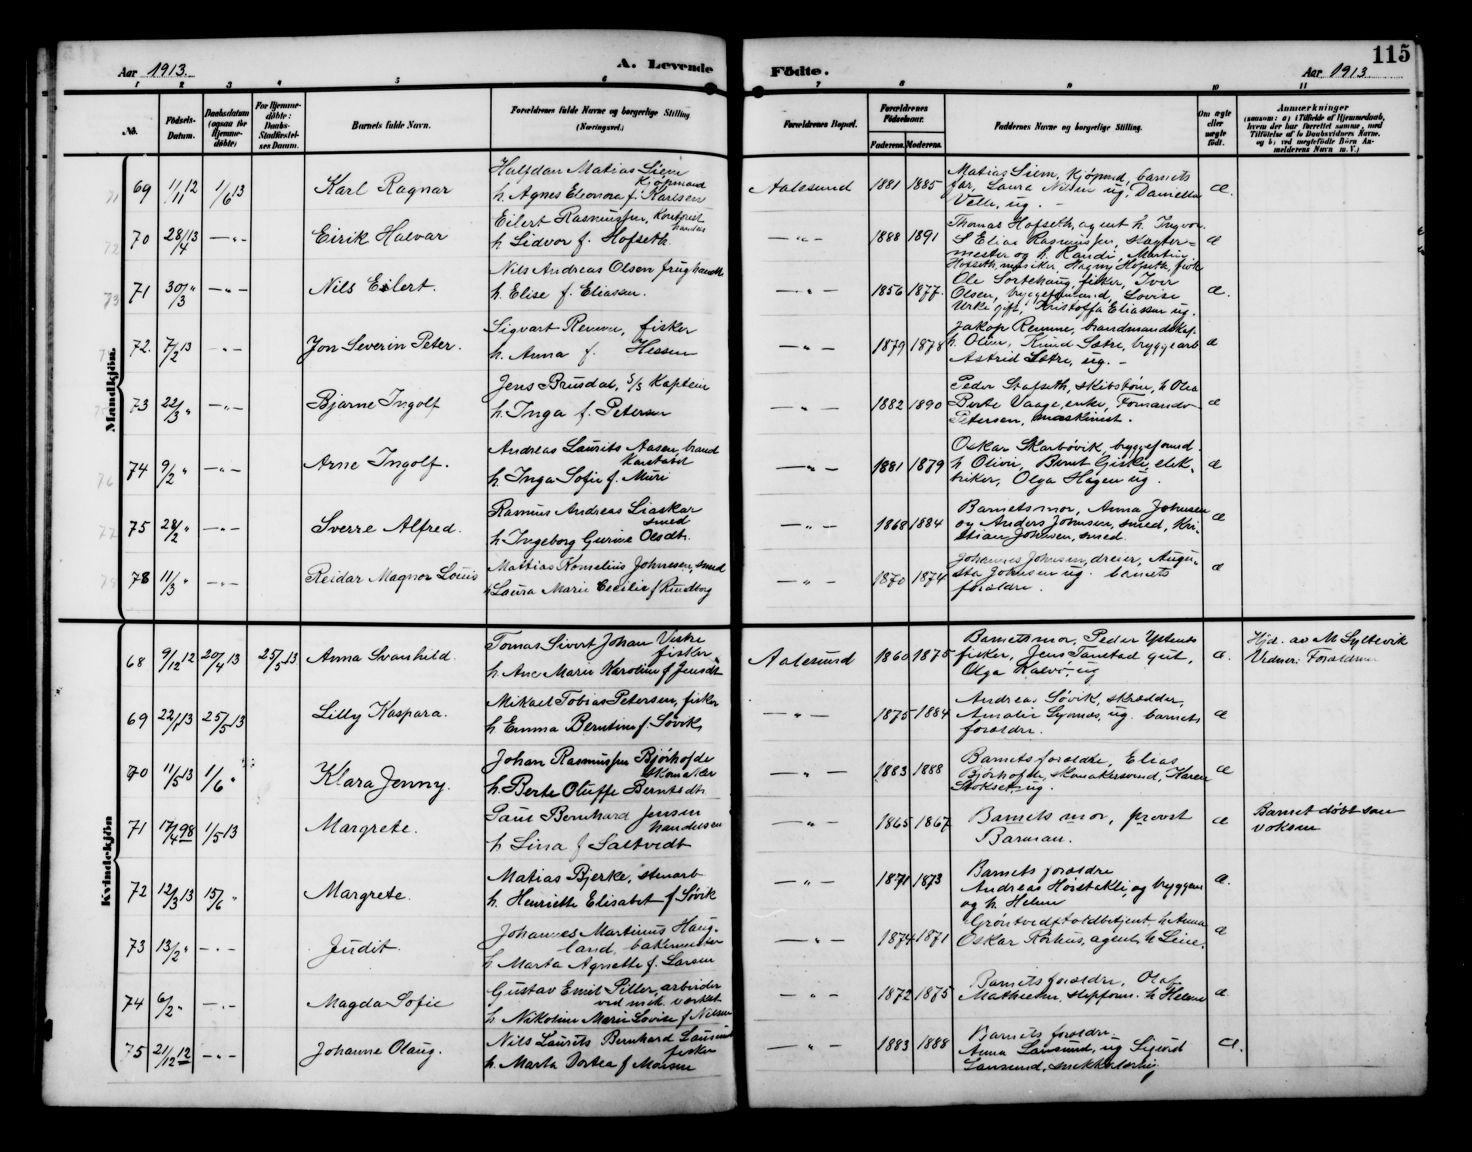 115
Aar 1913.
A. Levende
Födte.
Aar 1913
1 2 3 4 5 6 7 8 9 10 11
No.
Födsels-
Datum.
Daabsdatum
(ogsaa for
Hjemme-
döbte)
For Hjemme-
döbte:
Daabs-
Stadfæstel-
ses Datum.
Barnets fulde Navn.
Forældrenes fulde Navne og borgerlige Stilling
(Næringsvei.)
Forældrenes Bopæl.
Forældrenes
Födselsaar.
Faderens. Moderens.
Faddernes Navne og borgerlige Stilling.
Om ægte
eller
uægte
födt.
Anmærkninger
Mandkjön.
69 1/11 12 1/6 13 Karl Ragnar
Halfdan Matias Siem
Kjøpmand
h. Agnes Eleonora f. Karlsen
Aalesund 1881 1885
Matias Siem, kjøpmd, barnets
far, Laura Nilsen ug, Daniella
Velle, ug. -
æ.
70 28/4 13 — „ — Eirik Halvar
Eilert Rasmussen,
h. Lidvor f. Hofseth.
— „ — 1888 1891
Thomas Hofseth, agent h. Ingvor
Elias Rasmussen, slagter-
mester og h. Randi, Martin
Hofseth, musiker,
æ
71 30/3 „ — „ — Nils Eilert.
Nils Andreas Olsen
h. Elise f. Eliassen.
— „ — 1856 1877.
Ole Sortehaug, fisker, Iver
Olsen, byggeformand, Lovise
Urke gift, Kristofa Eliassen ug.
æ.
72. 7/2 13 — „ — Jon Severin Peter.
Sigvart Remøe, fisker
h. Anna f. Hessen
— „ — 1879 1878
Jakop Remme,
h. Oline, Knud Sætre, byggearb
Astrid Sætre, ug. -
æ
73 22/3 „ — „ — Bjarne Ingolf
Jens Brusdal, S/S Kaptein
h. Inga f. Petersen
— „ — 1882 1890
Peder Stafseth, skibstøm, h Olea
Berte Vaage, enke, Fernando
Petersen, maskinist.
æ
74 9/2 „ — „ — Arne Ingolf.
Andreas Laurits Aasen, brand
Konstabel
h. Inga Sofie f. Muri
— „ — 1881 1879
Oskar Skarbövik, byggeformd.
h Olivie, Bernt Giske, elek-
triker, Olga Hagen ug.
æ
75 28/2 „ — „ — Sverre Alfred.
Rasmus Andreas Liaskar
smed
h. Ingeborg Gurine Olsdtr.
— „ — 1868 1884
Barnets mor, Anna Johnsen
og Anders Johnsen, smed, Kri-
stian Johnsen, smed.
æ
78 11/3 „ — „ — Reidar Magnor Louis
Mathias Kornelius Johnsen, smed
h Laura Marie Cecilie f
— „ — 1870 1874
Johannes Johnsen, dreier, Augu-
sta Johnsen ug. barnets
forældre.
æ
Kvindekjön
68 9/12 12 20/4 13 25/5 13 Anna Svanhild.
Tomas Sivert Johan Vestre
fisker
h. Ane Marie Karoline f Jensdt
Aalesund 1860 1875
Barnets mor, Peder
fisker, Jens Tanstad gut,
Olga Kalvø, ug
æ.
Hjd. av M Syltevik
Vidner: Forældrene
69 22/1 13 25/5 13 Lilly Kaspara.
Mikael Tobias Petersen, fisker
h Emma Berntine f. Søvik
— „ — 1875 1884
Andreas Søvik, skrædder,
Amalie ug. barnets
forældre.
æ
70 11/5 13 1/6 „ Klara Jenny.
Johan Rasmussen Bjørhofde
Skomaker
h. Berte Oluffe Berntsdt
— „ — 1883 1888
Barnets forældre, Elias
Bjørhofde, skomakersvend, Karen
Stokset, ug.
æ
71 17/4 98 1/5 13 Margrete.
Paul Bernhard Jensen
handelsm
h Lina f Saltvedt
— „ — 1865 1867
Barnets mor, provst
Barman.
æ
Barnet döbt som
voksen
72 12/3 13 15/6 „ Margrete.
Matias Bjerke, stenarb
h. Henriette Elisabet f Søvik
— „ — 1871 1873
Barnets forældre
Andreas og byggem
og h. Helene
æ.
73 13/2 „ — „ — Judit.
Johannes Martinus Haug-
land, bakermester
h Marta Agnette f. Larsen
— „ — 1874 1871
Grøntvedt toldbetjent h Anna
Oskar Rörhus, agent, h Line,
æ
74 6/2 „ — „ — Magda Sofie
Gustav Emil Piller, arbeider
ved mek. verkst.
h. Nikoline Marie Lovise f Nilsen
— „ — 1872 1875
Barnets forældre, Olaf
Mathisen, slipform. h Helene
æ
75 21/12 12 — „ — Johanne Olaug.
Nils Laurits Bernhard Lausund
fisker
h. Marta Dortea f Monsen
— „ — 1883 1888
Barnets forældre
Anna Lausund, ug Sigvrd
Lausund, snekkerlærling
æ.